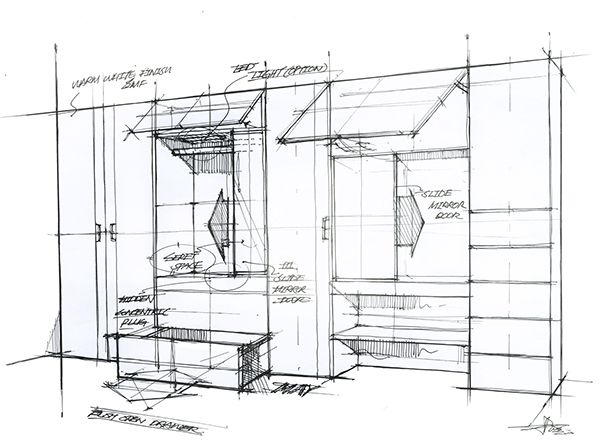 WARM WHITE FINISH
LED
LIGHT (OPTION)
SLIDE
MIRROR
DOOR
SPACE
SLIDE
MIRROR
DOOR
HIDDEN
CONCENTRIC
PLUG
PUSH OPEN DRAWER